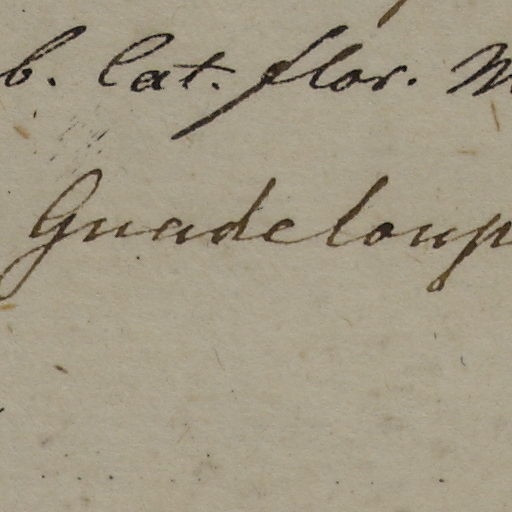 b. Cat. flor. M
Guadeloup